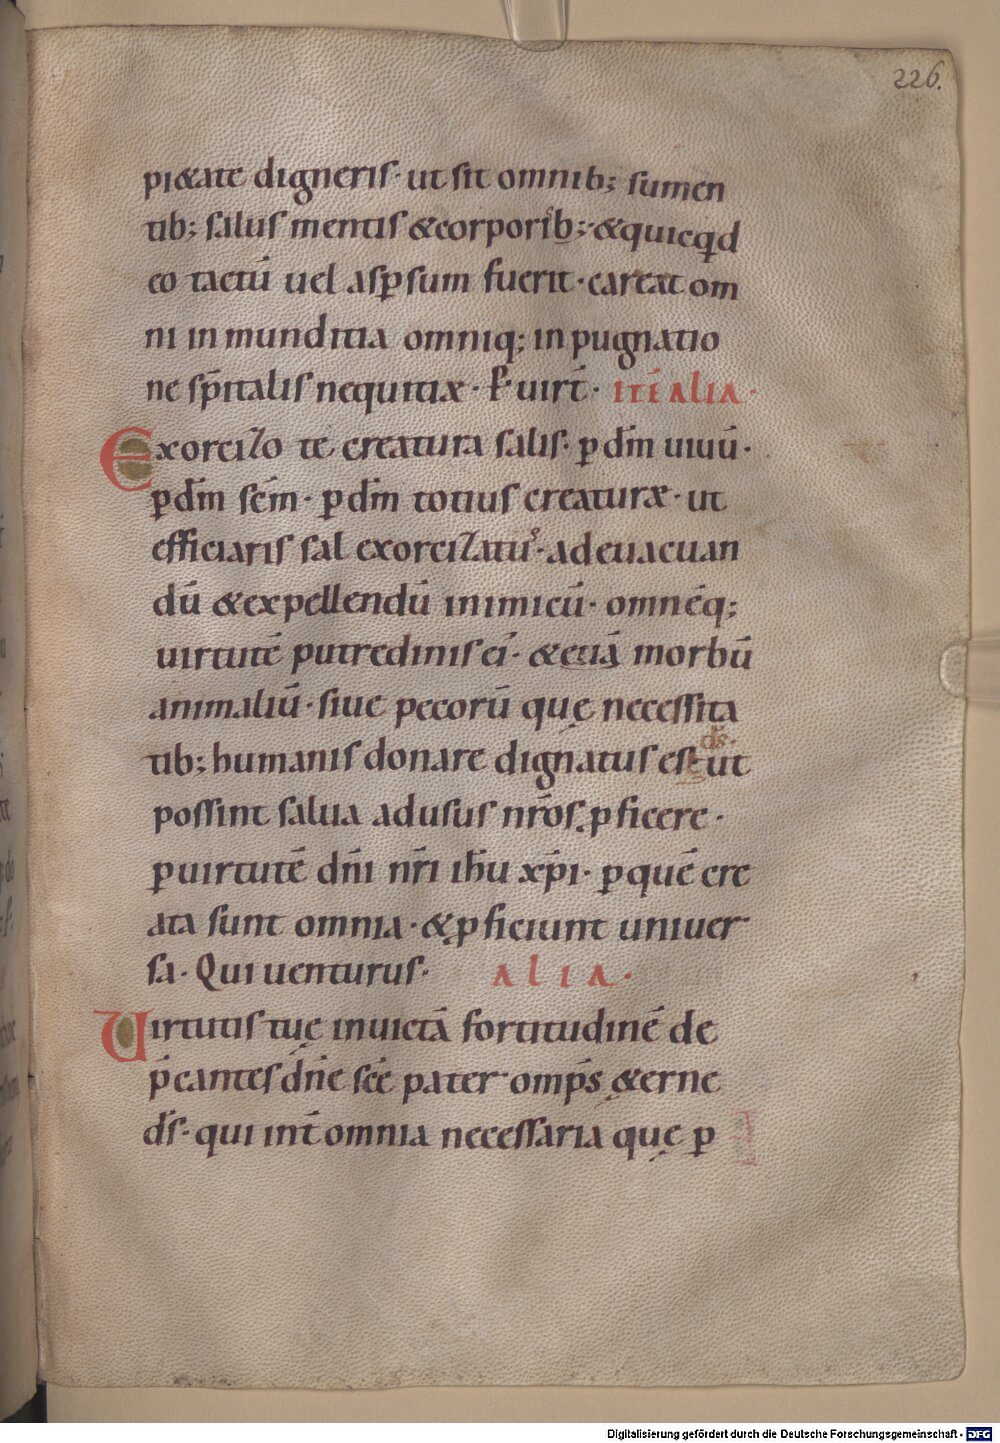 226.
pi&ate digneris· ut sit omnib; sumen
tib; salus mentis &corporib;·&quicq̣d
eo tactū uel asꝑsum fuerit·careat om
ni in munditia omniq; in pugnatio
ne sp̄italis nequitiæ· ꝑ· uirt̄· ITĒ ALIA·
Exorcizo te creatura salis· ꝑ dm̄ uiuū·
ꝑ dm̄ scm̄· ꝑ dm̄ totius creaturæ· ut
efficiaris sal exorcizatū·ad euacuan
dū &expellendū inimicū· omnēq;
uirtutē putredinis ei· &euā morbū
animaliū·siue pecorū quę necessita
tib; humanis donare dignatus est ds̄· ut
possint salua adusus nr̄os ꝓficere·
ꝑ uirtutē dn̄i nr̄i ih̄u xp̄i· ꝑ quē cre
ata sunt omnia·&ꝓficiunt uniuer
sa· Qui uenturus· ALIA·
Uirtutis tuę inuictā fortitudinē de
p̄cantes dn̄e scē pater omp̄s &erne
ds̄· qui int̄ omnia necessaria quę ꝑ
Digitalisierung gefördert durch die Deutsche Forschungsgemeinschaft - DFG